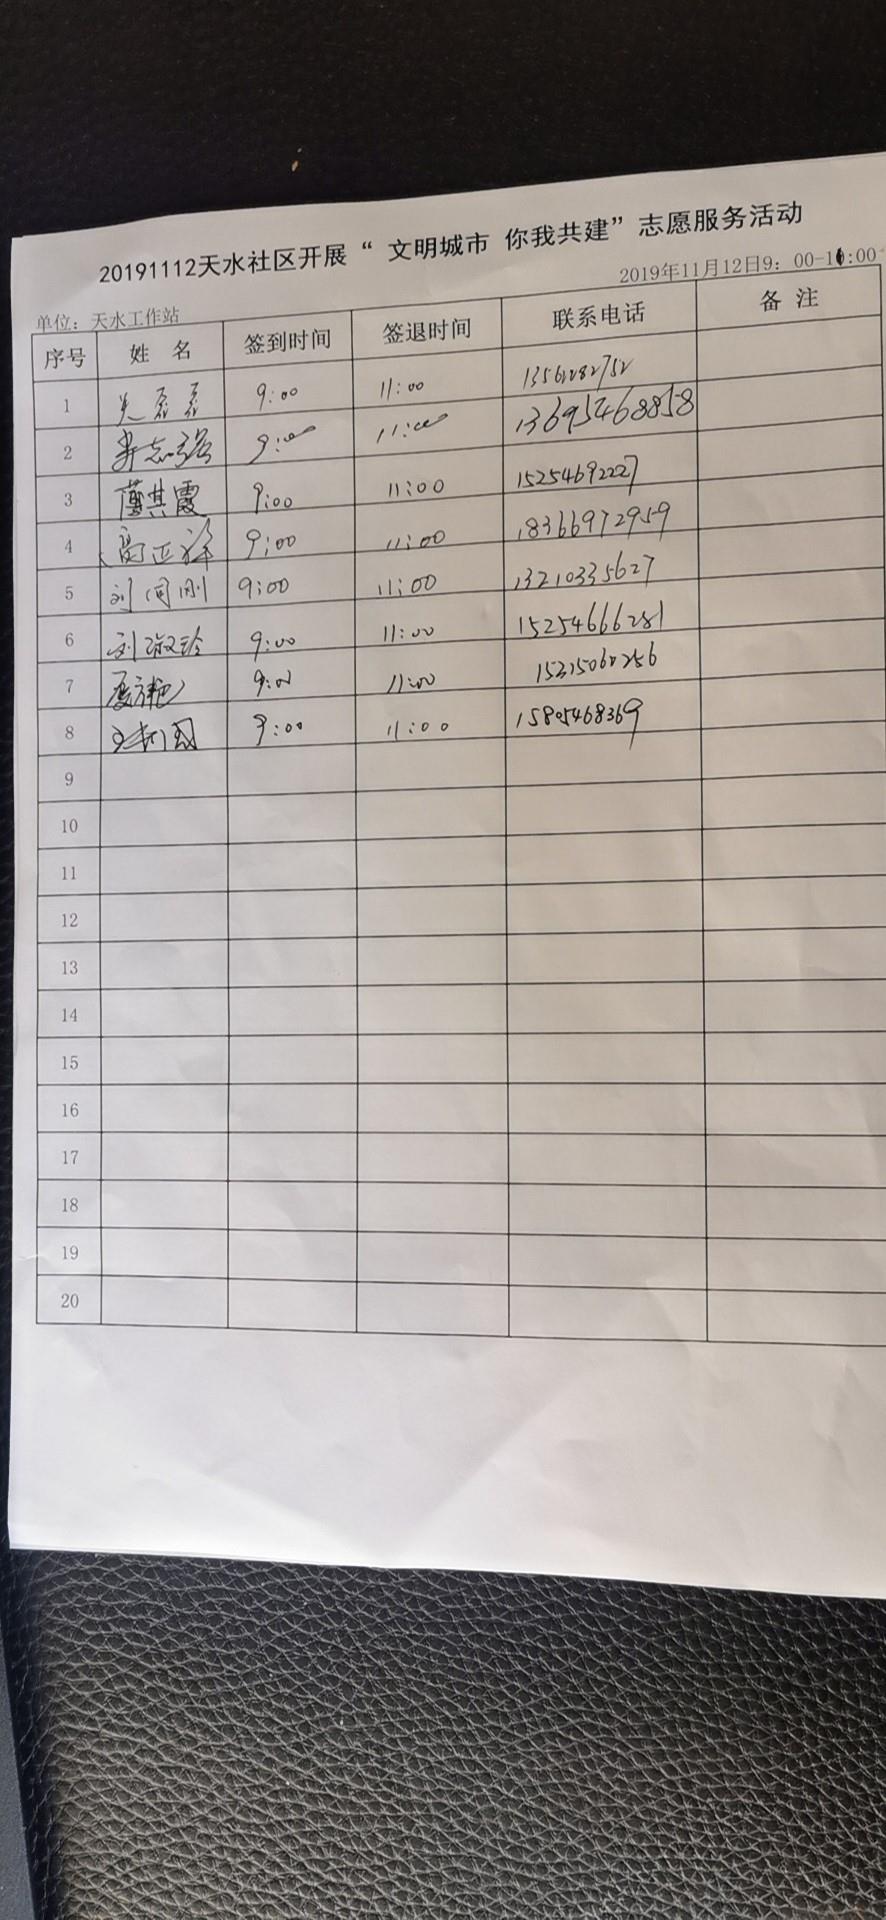 20191112天水社区开展“ 文明城市 你我共建”志愿服务活动
2019年11月12日9：00-11:00
单位：天水工作站
序号 姓 名 签到时间 签退时间 联系电话 备 注
1 9:00 11:00
2 志强 9:00 11:00 13695468858
3 薄其霞 9:00 11:00 15254692227
4 高正 9:00 11:00 18366972959
5 刘同刚 9:00 11:00 13210335627
6 刘淑玲 9:00 11:00 15254666281
7 9:00 11:00
8 9:00 11:00 15805468369
9
10
11
12
13
14
15
16
17
18
19
20